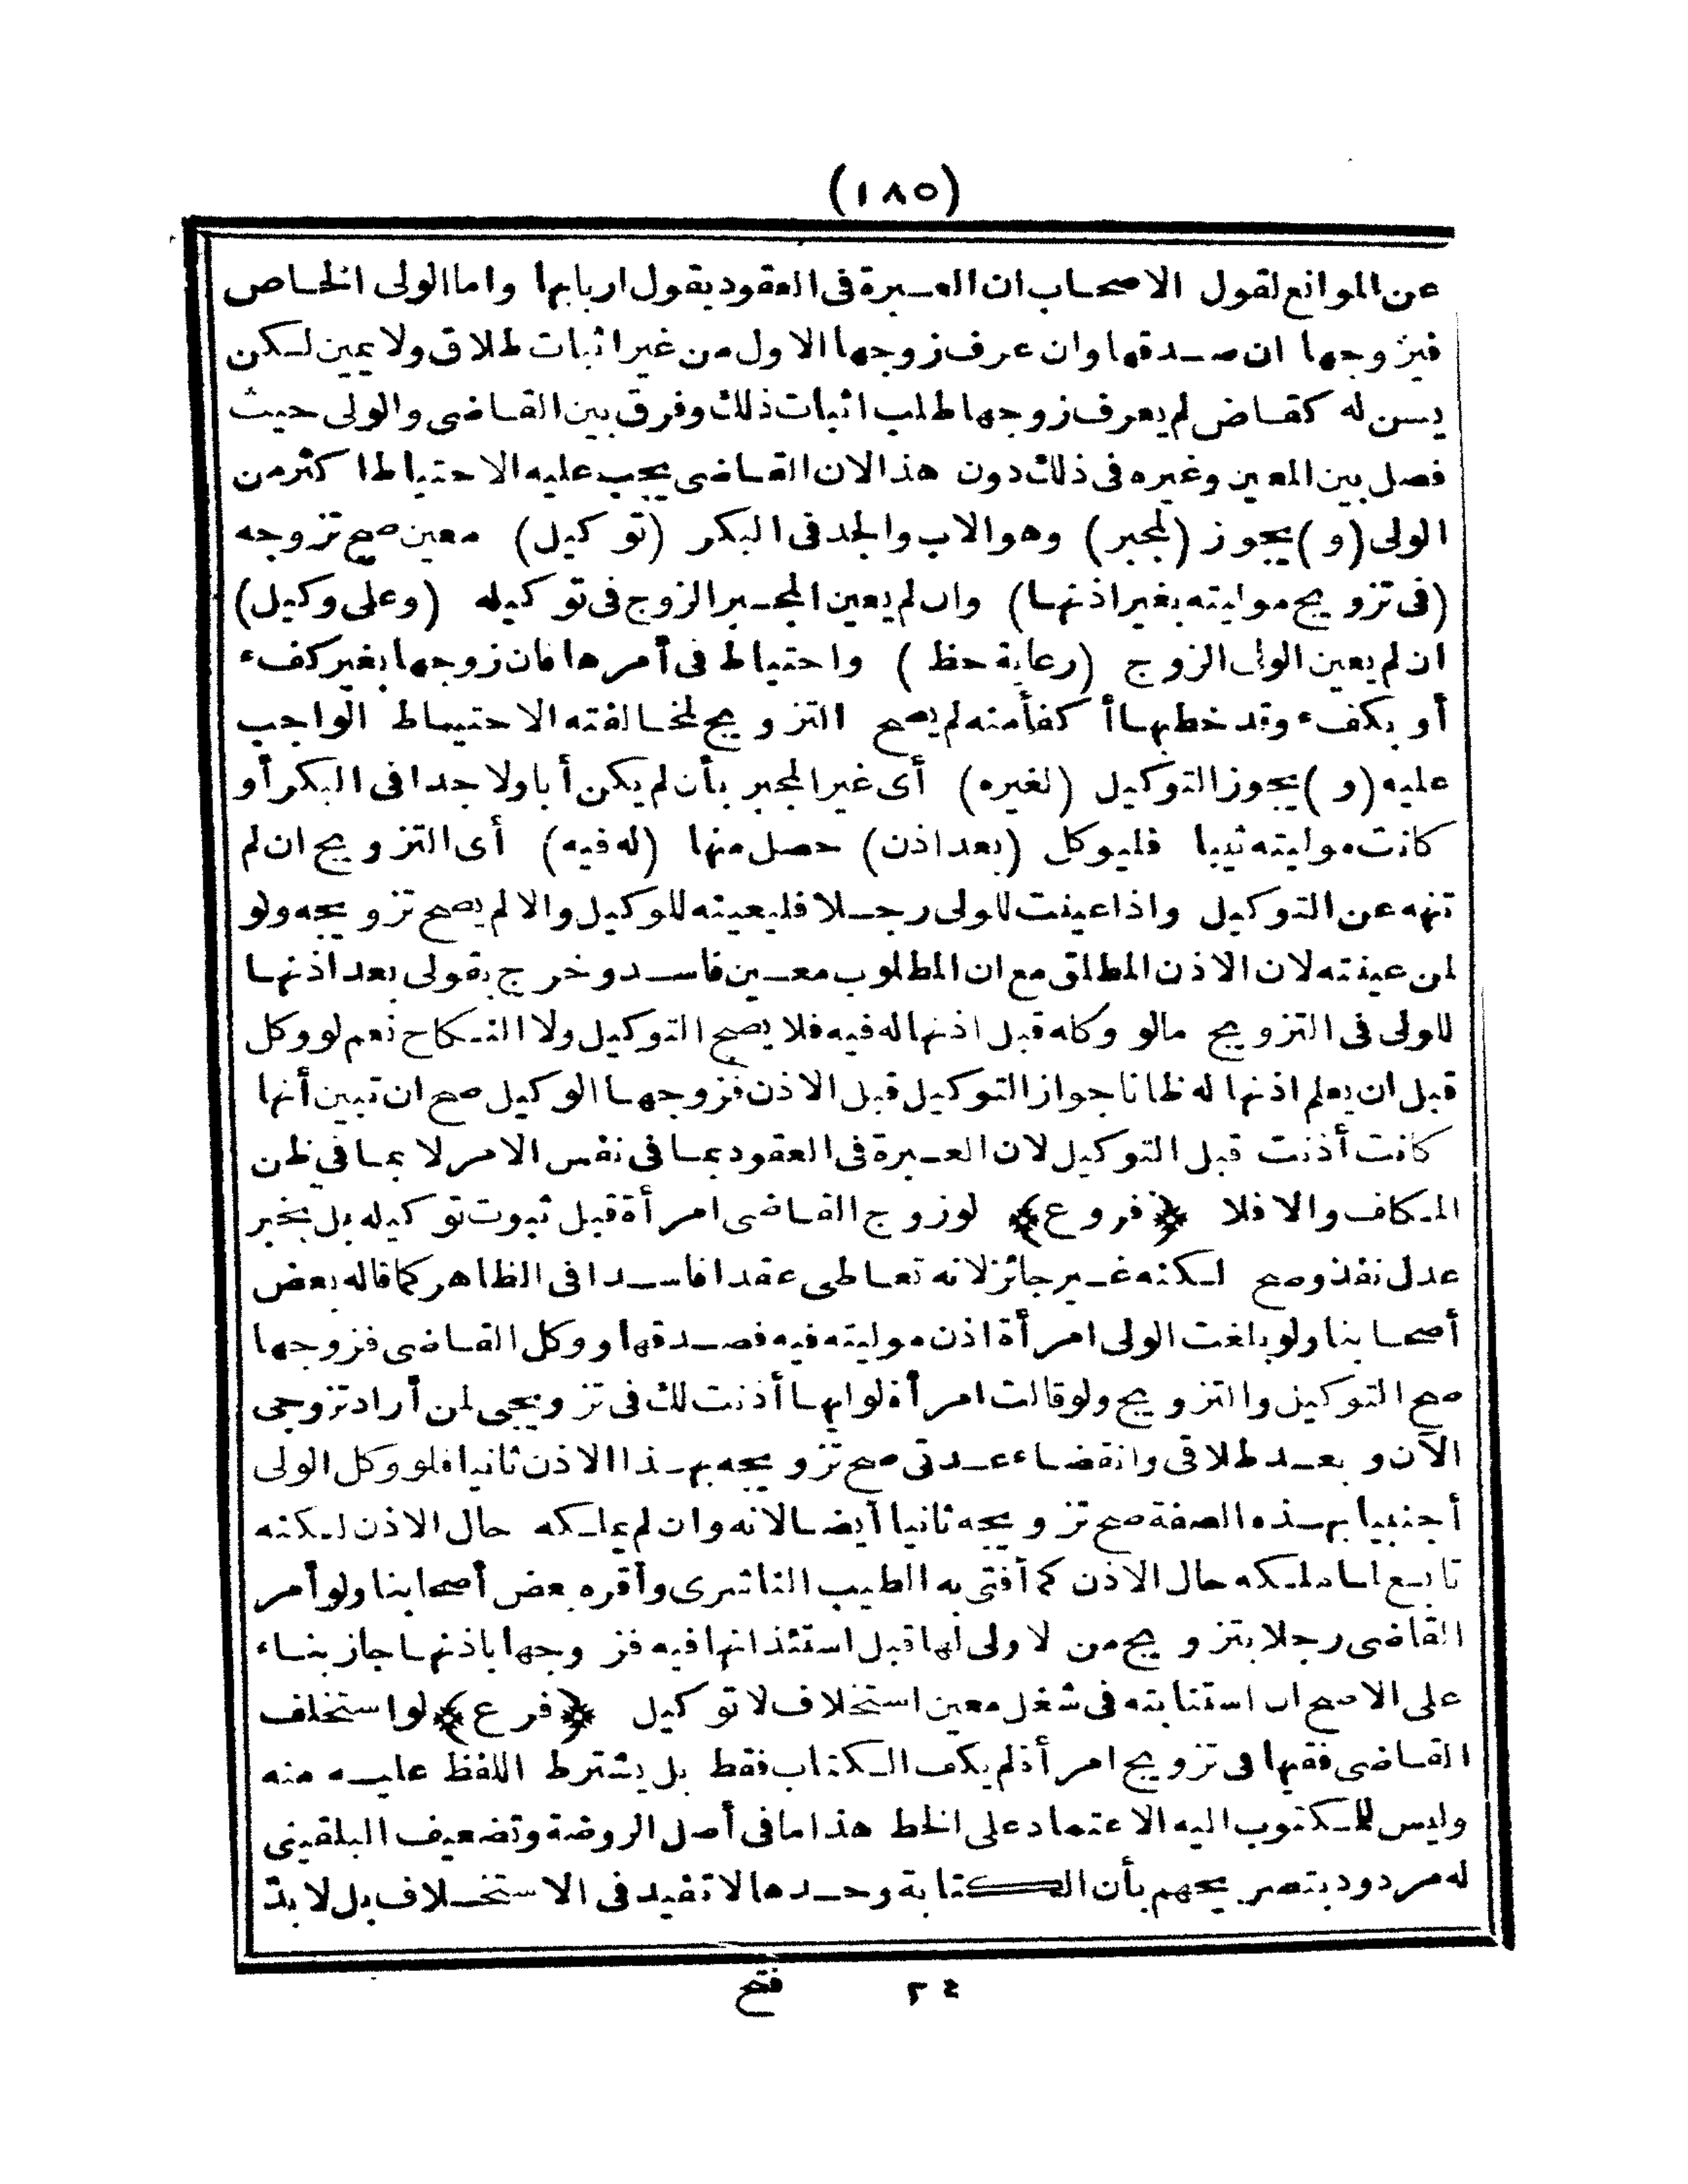 (١٨٥)
عن الموانع لقول الاصحاب ان العبرة فى العقود بقول اربابها واما الولى الخاص
فيزوجها ان صدقها وان عرف زوجها الاول من غير اثبات طلاق ولا يمين لكن
يسن له كقاض لم يعرف زوجها طلب اثبات ذلك وفرق بين القاضى والولى حيث
فصل بين المعين وغيره فى ذلك دون هذا لان القاضى يجب عليه الاحتياط اكثر من
الولى (و) يجوز (لمجبر) وهو الاب والجد فى البكر (توكيل) معين صح تزوجه
(فى تزويج موليته بغير اذنها) وان لم يعين المجبر الزوج فى توكيله (وعلى وكيل)
ان لم يعين الولى الزوج (رعاية حظ) واحتياط فى أمرها فان زوجها بغير كفء
أو بكفء وقد خطبها أكفأ منه لم يصح التزويج لمخالفته الاحتياط الواجب
عليه (و) يجوز التوكيل (لغيره) أى غير المجبر بأن لم يكن أبا ولا جدا فى البكر أو
كانت موليته ثيبا فليوكل (بعد اذن) حصل منها (له فيه) أى التزويج ان لم
تنهه عن التوكيل واذا عينت للولى رجلا فليعينه للوكيل والا لم يصح تزويجه ولو
لمن عينته لان الاذن المطلق مع ان المطلوب معين فاسد وخرج بقولى بعد اذنها
للولى فى التزويج مالو وكله قبل اذنها له فيه فلا يصح التوكيل ولا النكاح نعم لو وكل
قبل ان يعلم اذنها له ظانا جواز التوكيل قبل الاذن فزوجها الوكيل صح ان تبين أنها
كانت أذنت قبل التوكيل لان العبرة فى العقود بما فى نفس الامر لا بما فى ظن
المكلف والا فلا ﴿فروع﴾ لو زوج القاضى امرأة قبل ثبوت توكيله بل بخبر
عدل نفذ وصح لكنه غير جائز لانه تعاطى عقدا فاسدا فى الظاهر كما قاله بعض
أصحابنا ولو بلغت الولى امرأة اذن موليته فيه فصدقها ووكل القاضى فزوجها
صح التوكيل والتزويج ولو قالت امرأة لوليها أذنت لك فى تزويجى لمن أراد تزوجى
الآن وبعد طلاقى وانقضاء عدتى صح تزويجه بهذا الاذن ثانيا فلو وكل الولى
أجنبيا بهذه الصفة صح تزويجه ثانيا أيضا لانه وان لم يملكه حال الاذن لكنه
تابع لما ملكه حال الاذن كما أفتى به الطيب الناشرى وأقره بعض أصحابنا ولو أمر
القاضى رجلا بتزويج من لا ولى لها قبل استئذانها فيه فزوجها باذنها جاز بناء
على الاصح ان استنابته فى شغل معين استخلاف لا توكيل ﴿فرع﴾ لو استخلف
القاضى فقيها فى تزويج امرأة لم يكف الكتاب فقط بل يشترط اللفظ عليه منه
وليس للمكتوب اليه الاعتماد على الخط هذا ما فى أصل الروضة وتضعيف البلقينى
له مردود بتصريحهم بأن الكتابة وحدها لا تفيد فى الاستخلاف بل لا بدّ
٢٤ فتح